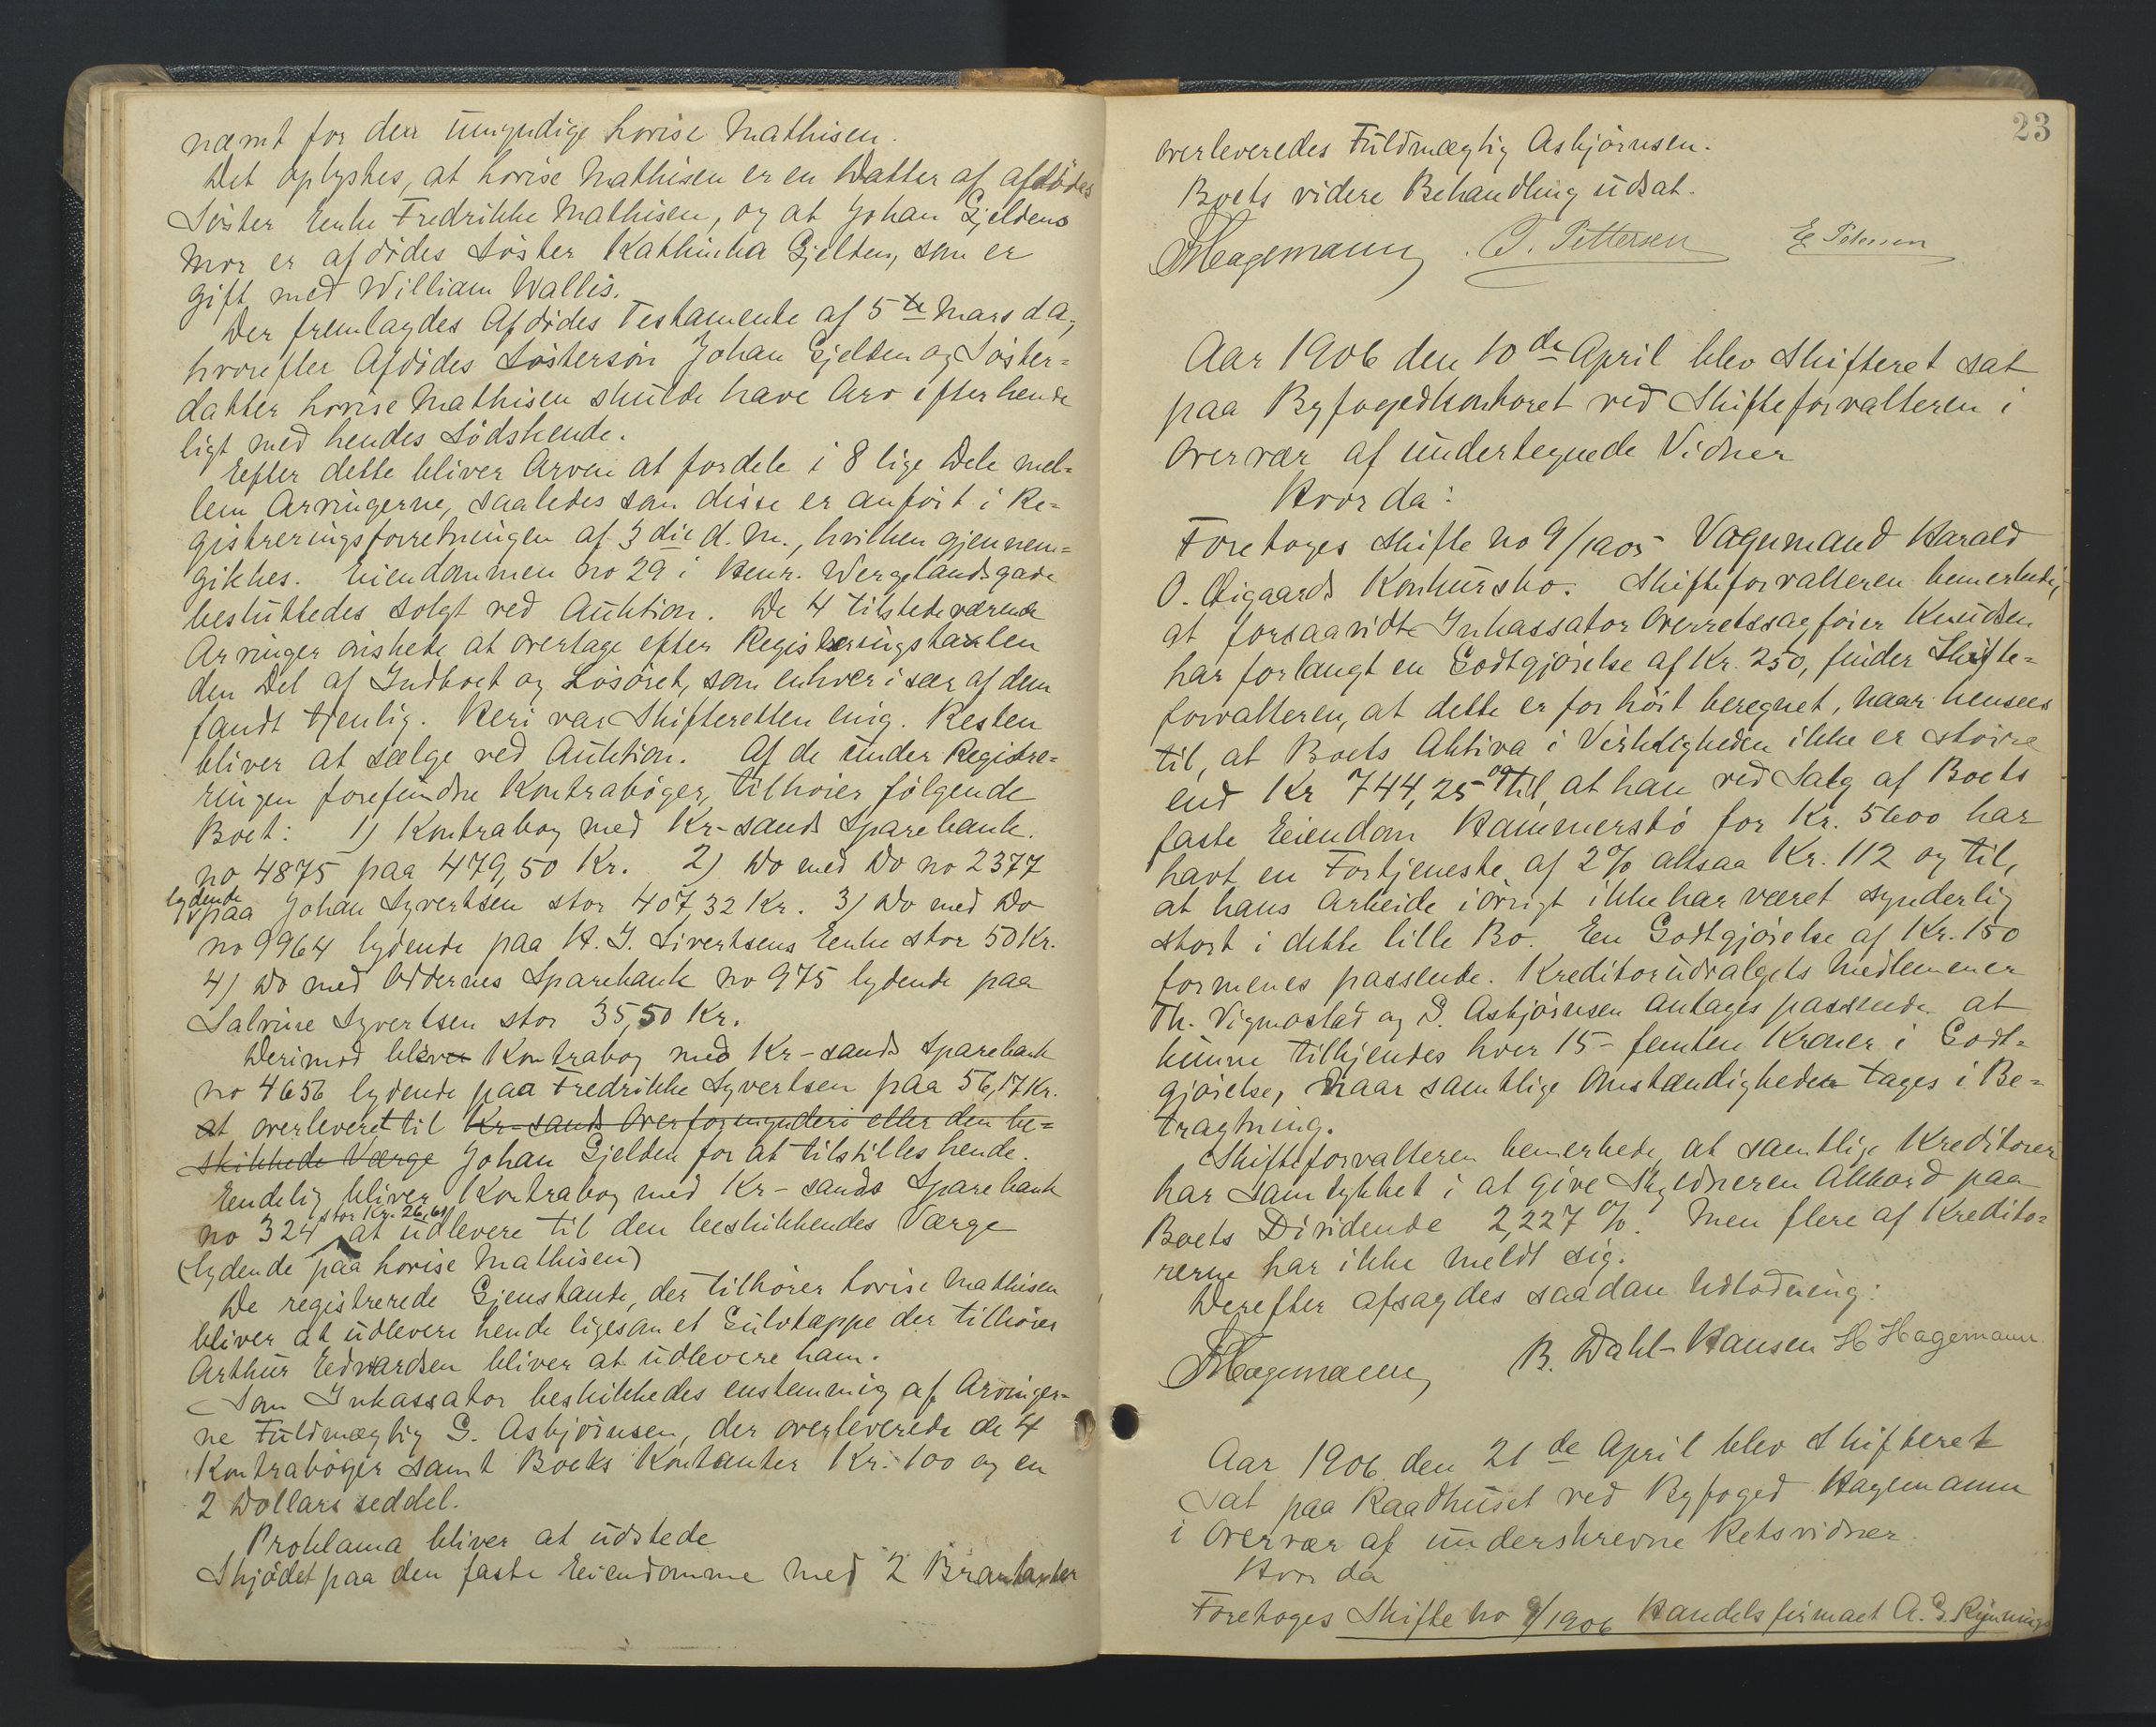 nævnt for den umyndige Lovise Mathisen.
Det oplystes, at Lovise Mathisen er en Datter af afdødes
Søster Enke Fredrikke Mathisen, og at Johan Gjeldens
Mor er afdødes Søster Kathinka Gjelden, som er
gift med William Wallis.
Der fremlagdes Afdødes Testamente af 5te Mars d.A.,
hvorefter Afdødes Søstersøn Johan Gjelden og Søster-
datter Lovise Mathisen skulde have Arv efter hende
ligt med hendes Sødskende.
Efter dette bliver Arven at fordele i 8 lige Dele mel-
lem Arvingerne, saaledes som disse er anført i Re-
gistreringsforretningen af 3die d.M., hvilken gjennem-
gikkes. Eiendommen no 29 i Henr. Wergelandsgade
besluttedes solgt ved Auktion. De 4 tilstedeværende
Arvinger ønskede at overtage efter Registreringstaxten
den Del af Indboet og Løsøret, som enhver især af dem
fandt tjenlig. Heri var Skifteretten enig. Resten
bliver at sælge ved Auktion. Af de under Registre-
ringen forefundne Kontrabøger, tilhører følgende
Boet: 1) Kontrabog med Kr-sands Sparebank.
no 4875 paa 479,50 Kr. 2) Do med Do no 2377
lydende paa Johan Syvertsen stor 407,32 Kr. 3) Do med Do
no 9964 lydende paa H. J. Sivertsens Enke stor 50 Kr.
4) Do med Oddernes Sparebank no 975 lydende paa
Salvine Syvertsen stor 35,50 Kr.
Derimod bliver Kontrabog med Kr-sands Sparebank
no 4656 lydende paa Fredrikke Syvertsen paa 56,17 Kr.
at overleveret til Kr-sands Overformynderi eller den be-
skikkede Værge Johan Gjelden for at tilstilles hende.
Endelig bliver Kontrabog med Kr-sands Sparebank
no 324 stor Kr. 26,61 at udlevere til den beskikkendes Værge
(lydende paa Lovise Mathisen)
De registrerede Gjenstande, der tilhører Lovise Mathisen
bliver at udlevere hende ligesom et Gulvtæppe der tilhører
Arthur Edvardsen bliver at udlevere ham.
Som Inkassator beskikkedes enstemmig af Arvinger-
ne Fuldmægtig G. Asbjørnsen, der overleverede de 4
Kontrabøger samt Boets Kontanter Kr. 100 og en
2 Dollars seddel.
Proklama bliver at udstede
Skjødet paa den faste Eiendomme med 2 Brantakster
23
overleveredes Fuldmægtig Asbjørnsen.
Boets videre Behandling udsat.
Hagemann T. Pettersen E. Petersen
Aar 1906 den 10de April blev Skifteret sat
paa Byfogedkontoret ved Skifteforvalteren i
Overvær af undertegnede Vidner
Hvor da:
Foretoges Skifte no 9/1905 Vognmand Harald
O. Øigaards Konkursbo. Skifteforvalteren bemerkede,
at forsaavidt Inkassator Overretssagfører Knudsen
har forlangt en Godtgjørelse af Kr. 250, finder Skifte-
forvalteren, at dette er for høit beregnet, naar hensees
til, at Boets Aktiva i Virkeligheden ikke er større
end Kr 744,25 og til, at han ved Salg af Boets
faste Eiendom Hammersbø for Kr. 5600 har
havt en Fortjeneste af 2% altsaa Kr. 112 og til,
at hans Arbeide iøvrigt ikke har været synderlig
stort i dette lille Bo. En Godtgjørelse af Kr. 150
formenes passende. Kreditorudvalgets Medlemmer
Th. Vigmostad og G. Asbjørnsen antages passende at
kunne tilkjendes hver 15- femten Kroner i Godt-
gjørelse, naar samtlige Omstændigheder tages i Be-
tragtning.
Skifteforvalteren bemerkede, at samtlige Kreditorer
har samtykket i at give Skyldneren Akkord paa
Boets Dividende 2,227%. Men flere af Kredito-
rerne har ikke meldt sig.
Derefter afsagdes saadan Udlodning:
Hagemann B. Dahl-Hansen H Hagemann
Aar 1906 den 21de April blev Skifteret
sat paa Raadhuset ved Byfoged Hagemann
i Overvær af underskrevne Retsvidner.
Hvor da
Foretoges Skifte no 9/1906 Handelsfirmaet A. G. Rynnings